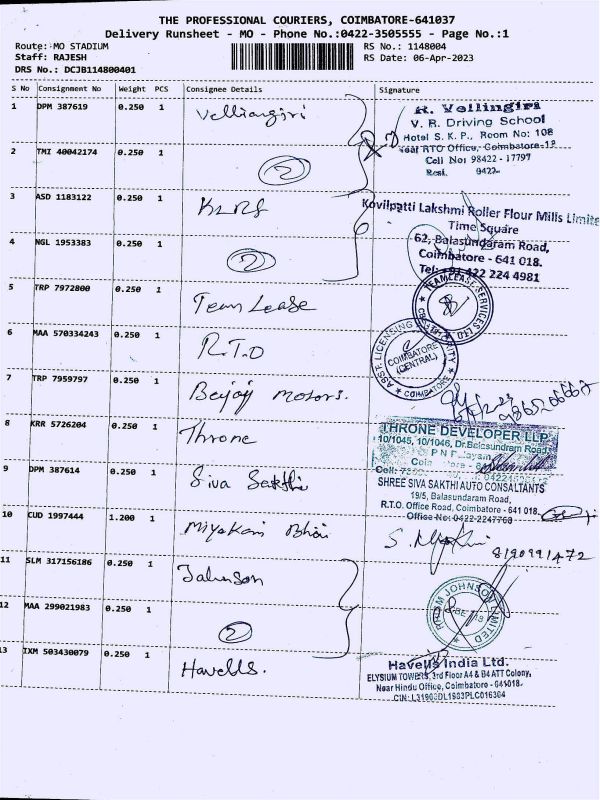 THE PROFESSIONAL COURIERS, COIMBATORE-641037
Delivery Runsheet - MO - Phone No.:0422-3505555 - Page No.:1
Route: MO STADIUM RS No.: 1148004
Staff: RAJESH RS Date: 06-Apr-2023
DRS No.: DCJB114800401
S No Consignment No Weight PCS Consignee Details Signature
1 DPM 387619 0.250 1 Velliangiri
R. Vellingiri
V. R. Driving School
Hotel S. K. P., Room No: 108
Near RTO Office, Coimbatore-18
Cell No: 98422 - 17797
Resi. 9422-
2 TMI 40042174 0.250 1 2
3 ASD 1183122 0.250 1 KLRF
Kovilpatti Lakshmi Roller Flour Mills Limite
Time Square
62, Balasundaram Road,
Coimbatore - 641 018.
Tel: +91 422 224 4981
4 NGL 1953383 0.250 1 2
5 TRP 7972800 0.250 1 Team Lease
TEAMLEASE SERVICES LTD
6 MAA 570334243 0.250 1 R.T.O
LICENSING
COIMBATORE
(CENTRAL)
COIMBATORE
7 TRP 7959797 0.250 1 Beijoy Motors.
8 KRR 5726204 0.250 1 Throne
THRONE DEVELOPER LLP
10/1045, 10/1046, Dr.Balasundram Road
9 DPM 387614 0.250 1 Siva Sakthi
SHREE SIVA SAKTHI AUTO CONSULTANTS
19/5, Balasundaram Road,
R.T.O. Office Road, Coimbatore - 641 018.
Office No: 0422-2247768
10 CUD 1997444 1.200 1 Miyakani Bhai
8190991472
11 SLM 317156186 0.250 1 Johnson
JOHNSON LIMITED
12 MAA 299021983 0.250 1 2
13 IXM 503430079 0.250 1 Havells.
Havells India Ltd.
ELYSIUM TOWERS, 3rd Floor A4 & B4 ATT Colony,
Near Hindu Office, Coimbatore - 641018.
CIN: L31900DL1983PLC016304